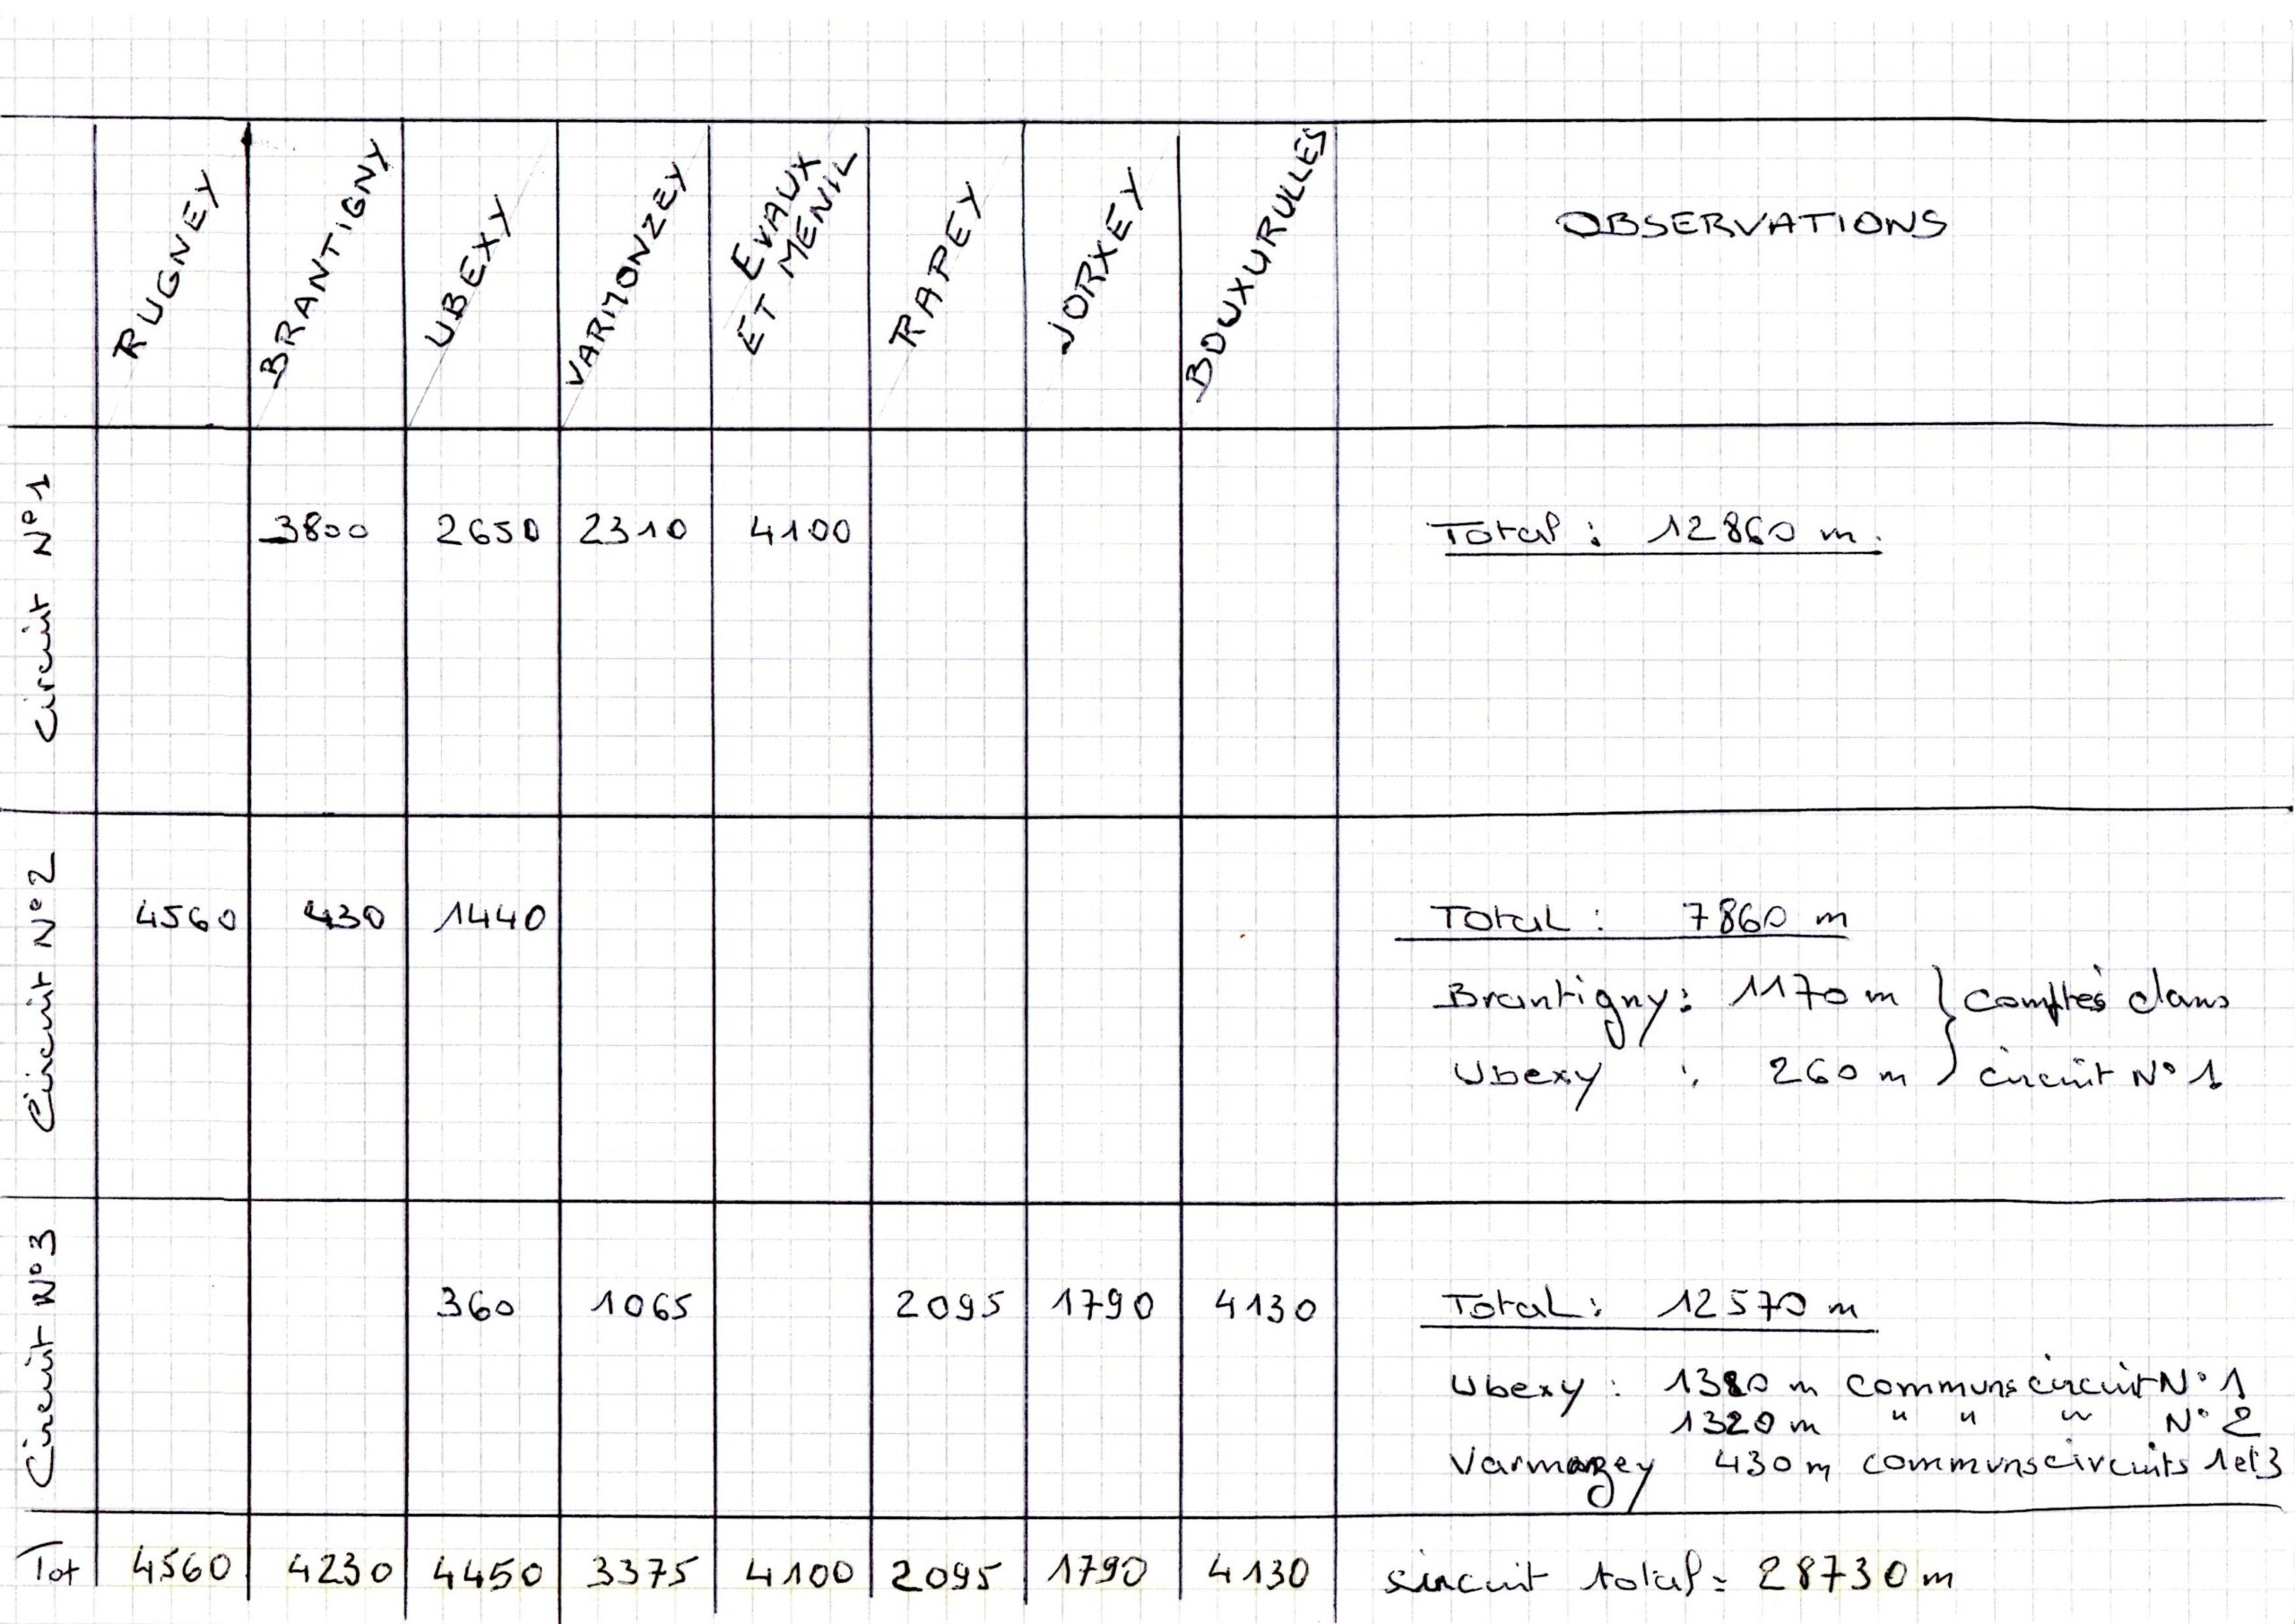 RUGNEY BRANTIGNY UBEXY VARIMONZEY EVAUX ET MENIL RAPEY JORXEY BOUXURULLES OBSERVATIONS
Circuit N°1 3800 2650 2310 4100 Total : 12860 m.
Circuit N°2 4560 430 1440 Total : 7860 m
Brantigny : 1170 m } comptés dans
Ubexy : 260 m } circuit N° 1
Circuit N°3 360 1065 2095 1790 4130 Total : 12570 m
Ubexy : 1380 m communs circuit N° 1
1320 m " " " N° 2
Varmozey 430 m communs circuits 1 et 3
Tot 4560 4230 4450 3375 4100 2095 1790 4130 circuit total = 28730 m